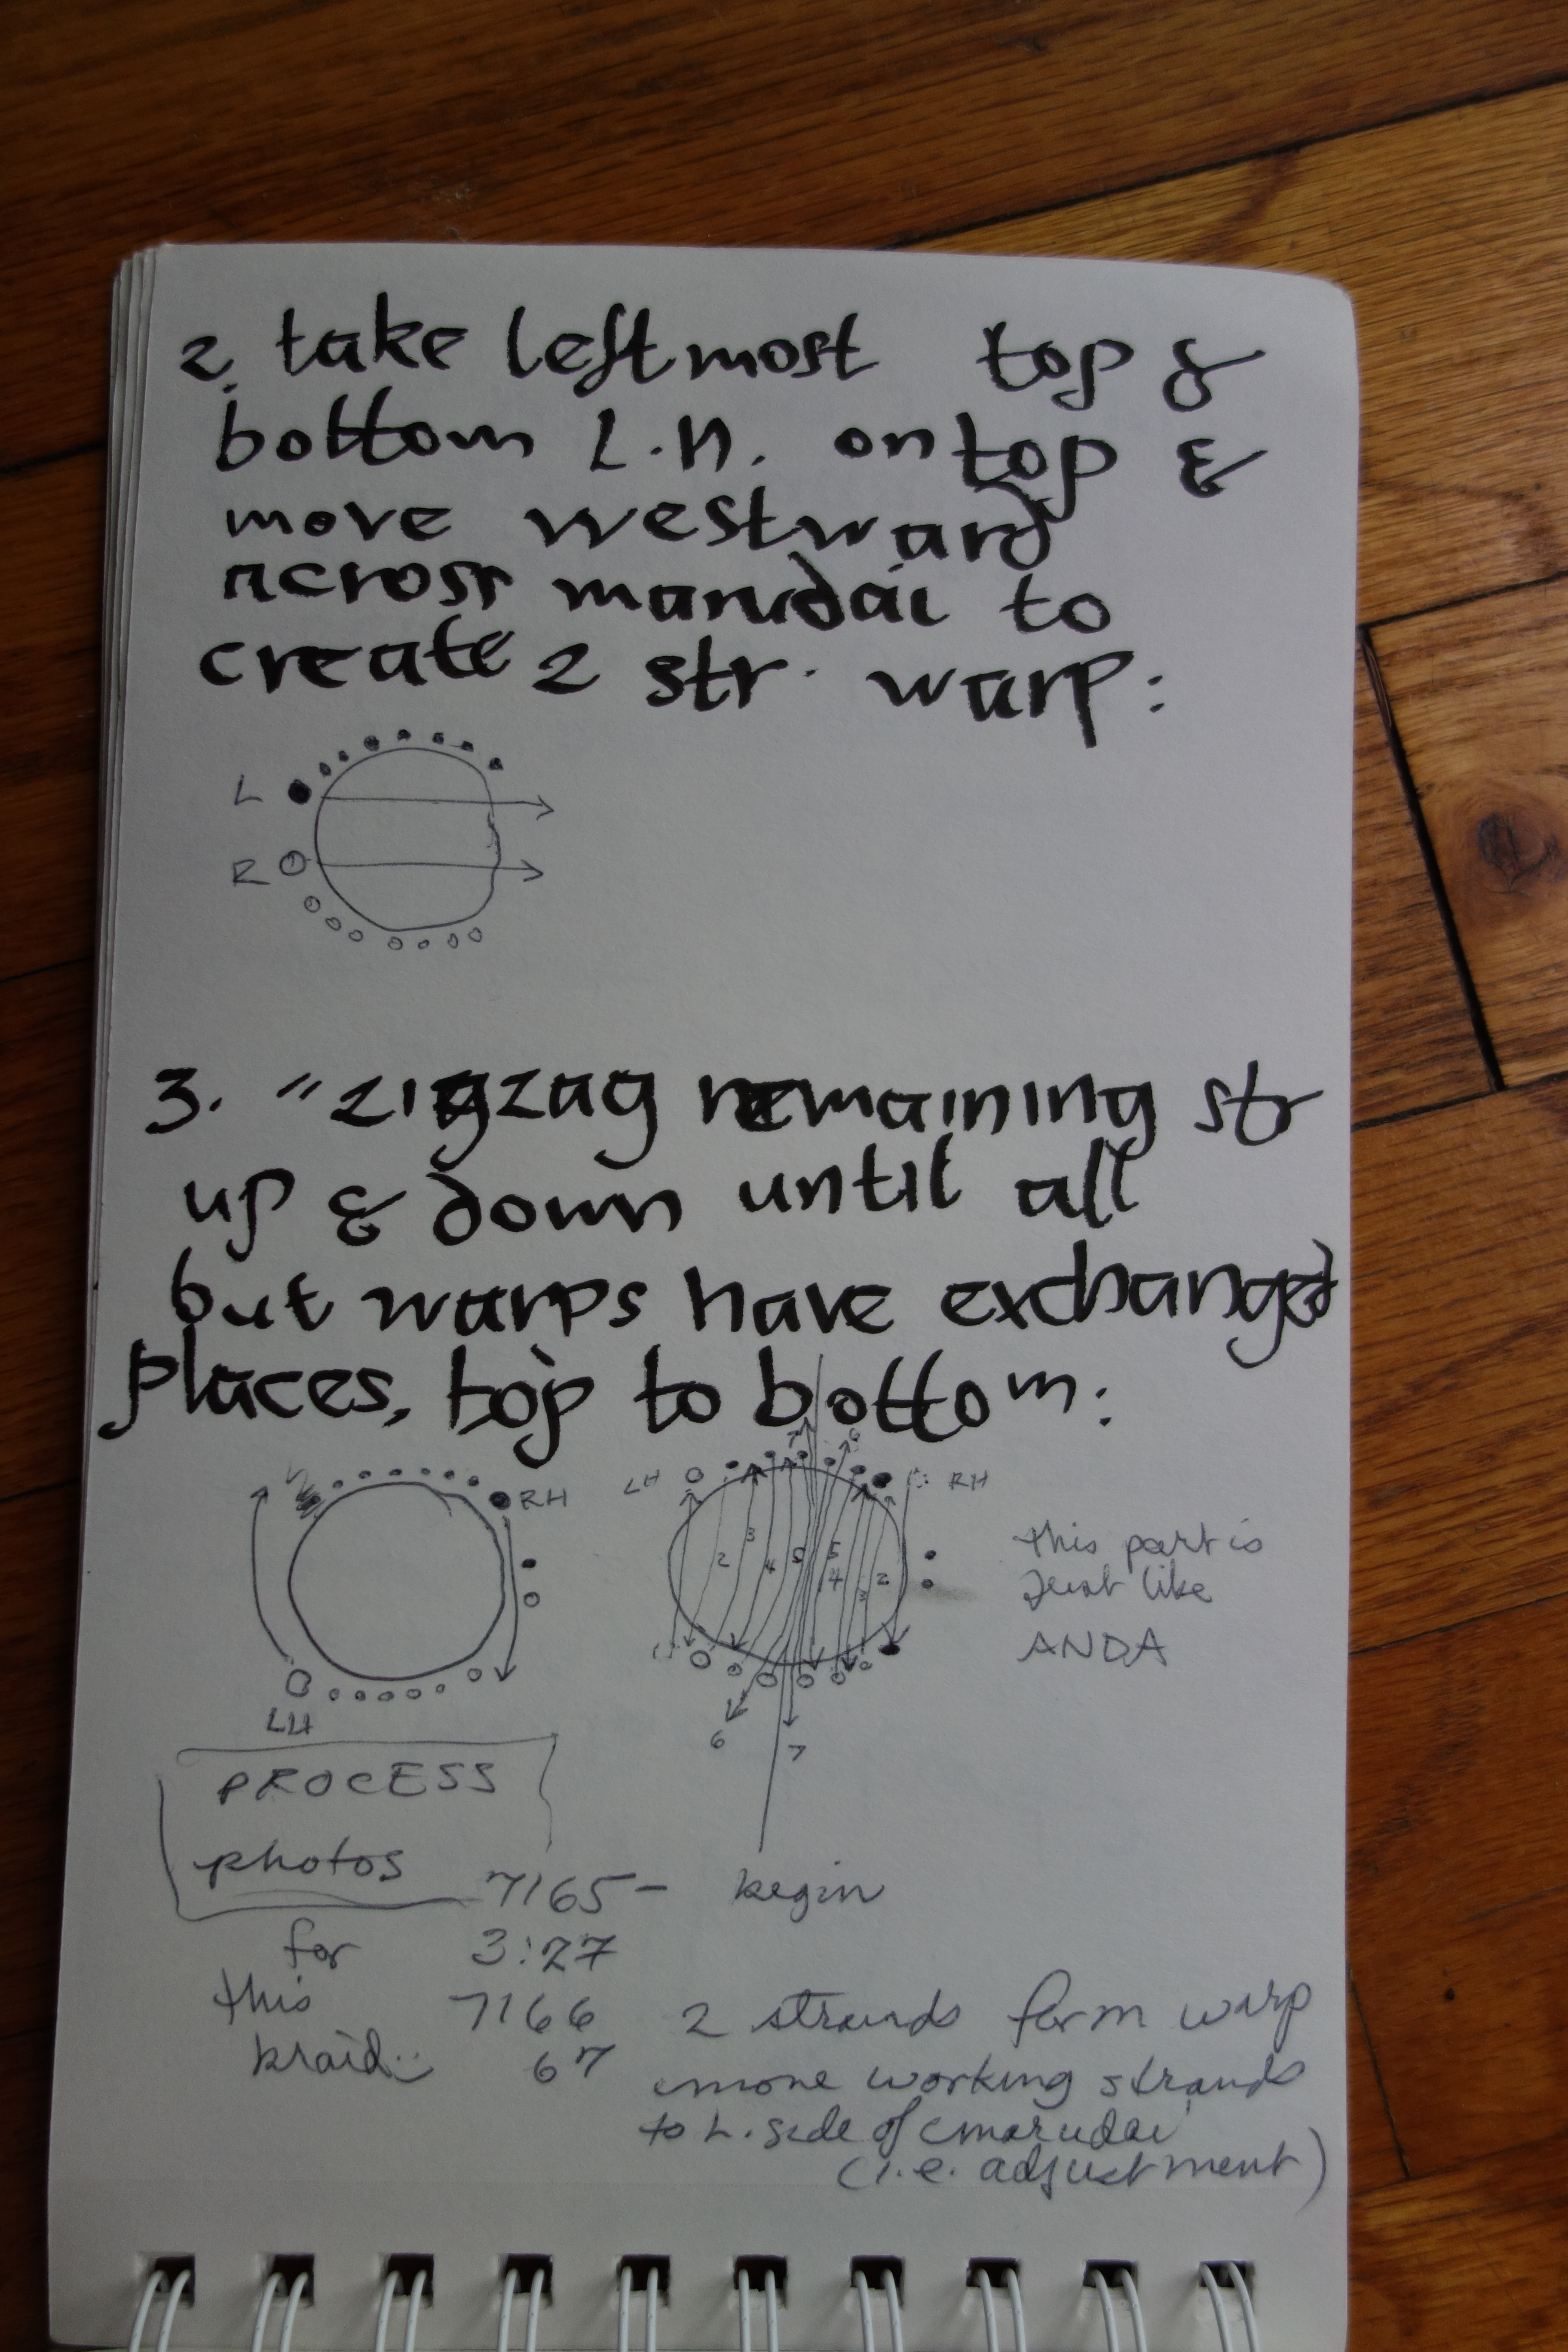 2. take leftmost top &
bottom L.H. on top &
move westward
across marudai to
create 2 str. warp:
L
R
3. "zigzag remaining str
up & down until all
but warps have exchanged
places, top to bottom:
RH
LH
LH
7
6
RH
2
3
4
5
5
4
3
2
6
7
this part is
Just like
ANDA
PROCESS
photos
for
this
braid:
7165 - begin
3:27
7166 2 strands form warp
67 move working strands
to L. side of marudai
(i.e. adjustment)